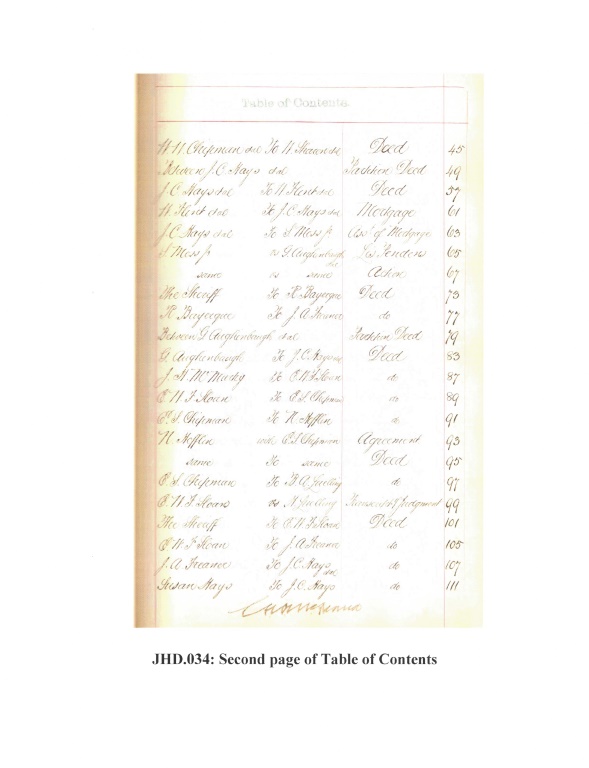 Table of Contents
H. H. Chapman et al To H. et al Deed 45
Between J. C. Hays et al Partition Deed 49
J. C. Hays et al To H. Flent et al Deed 57
H. Flent et al To J. C. Hays et al Mortgage 61
J. C. Hays et al To S. Moss Jr Ass't of Mortgage 63
S. Moss Jr vs G. Aughenbaugh et al Lis Pendens 65
same vs same Action 67
The Sheriff To R. Bayerque Deed 73
R. Bayerque To J. A. Freaner do 77
Between G. Aughenbaugh et al Partition Deed 79
G. Aughenbaugh To J. C. Hays Deed 83
J. H. McMurdy to E. H. F. Sloan do 87
E. H. F. Sloan To E. S. Chipman do 89
E. S. Chipman To N. Hefflin do 91
N. Hefflin with E. S. Chipman Agreement 93
same To same Deed 95
E. S. Chipman To do 97
E. H. F. Sloan vs Transcript of Judgment 99
The Sheriff To E. H. F. Sloan Deed 101
E. H. F. Sloan To J. A. Freaner do 105
J. A. Freaner To J. C. Hays et al do 107
Susan Hays To J. C. Hays do 111
JHD.034: Second page of Table of Contents